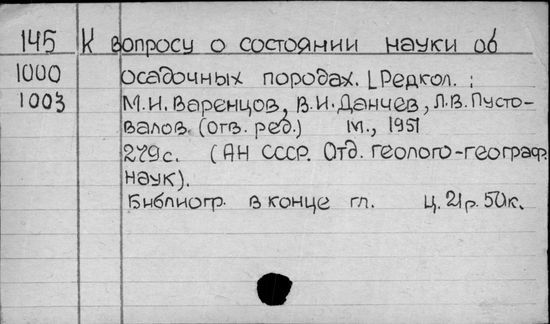 145 К вопросу о состоянии науки об
1000 осадочных породах. [Редкол.:
1003 М.И. Варенцов, В.И. Данчев, Л.В. Пусто-
валов. (отв. ред.) М., 1951
279с. (АН СССР. Отд. геолого-географ.
наук).
Библиогр. в конце гл. Ц. 21р. 50к.